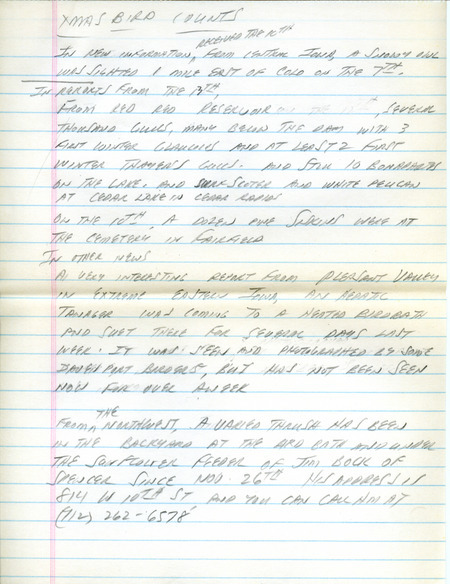 XMAS BIRD COUNTS
RECEIVED THE 10TH
IN NEW INFORMATION, FROM CENTRAL IOWA, A SNOWY OWL
WAS SIGHTED 1 MILE EAST OF COLO ON THE 7TH.
IN REPORTS FROM THE 13TH,
FROM RED RED RESERVOIR SEVERAL
THOUSAND GULLS, MANY BELOW THE DAM WITH 3
FIRST WINTER GLAUCOUS AND AT LEAST 2 FIRST
WINTER THAYER'S GULLS. AND STILL 10 BONAPARTES
ON THE LAKE. AND SURF SCOTER AND WHITE PELICAN
AT CEDAR LAKE IN CEDAR RAPIDS
ON THE 10TH, A DOZEN PINE SISKINS WERE AT
THE CEMETERY IN FAIRFIELD
IN OTHER NEWS
A VERY INTERESTING REPORT FROM PLEASANT VALLEY
IN EXTREME EASTERN IOWA, AN
TANAGER WAS COMING TO A HEATED BIRDBATH
AND SUET THERE FOR SEVERAL DAYS LAST
WEEK. IT WAS SEEN AND PHOTOGRAPHED BY SOME
DAVENPORT BIRDERS, BUT HAS NOT BEEN SEEN
NOW FOR OVER A WEEK
FROM THE NORTHWEST, A VARIED THRUSH HAS BEEN
IN THE BACKYARD AT THE BIRD BATH AND UNDER
THE SUNFLOWER FEEDER OF JIM BOCK OF
SPENCER SINCE NOV. 26TH HIS ADDRESS IS
814 W 10TH ST AND YOU CAN CALL HIM AT
(712) 262-6578